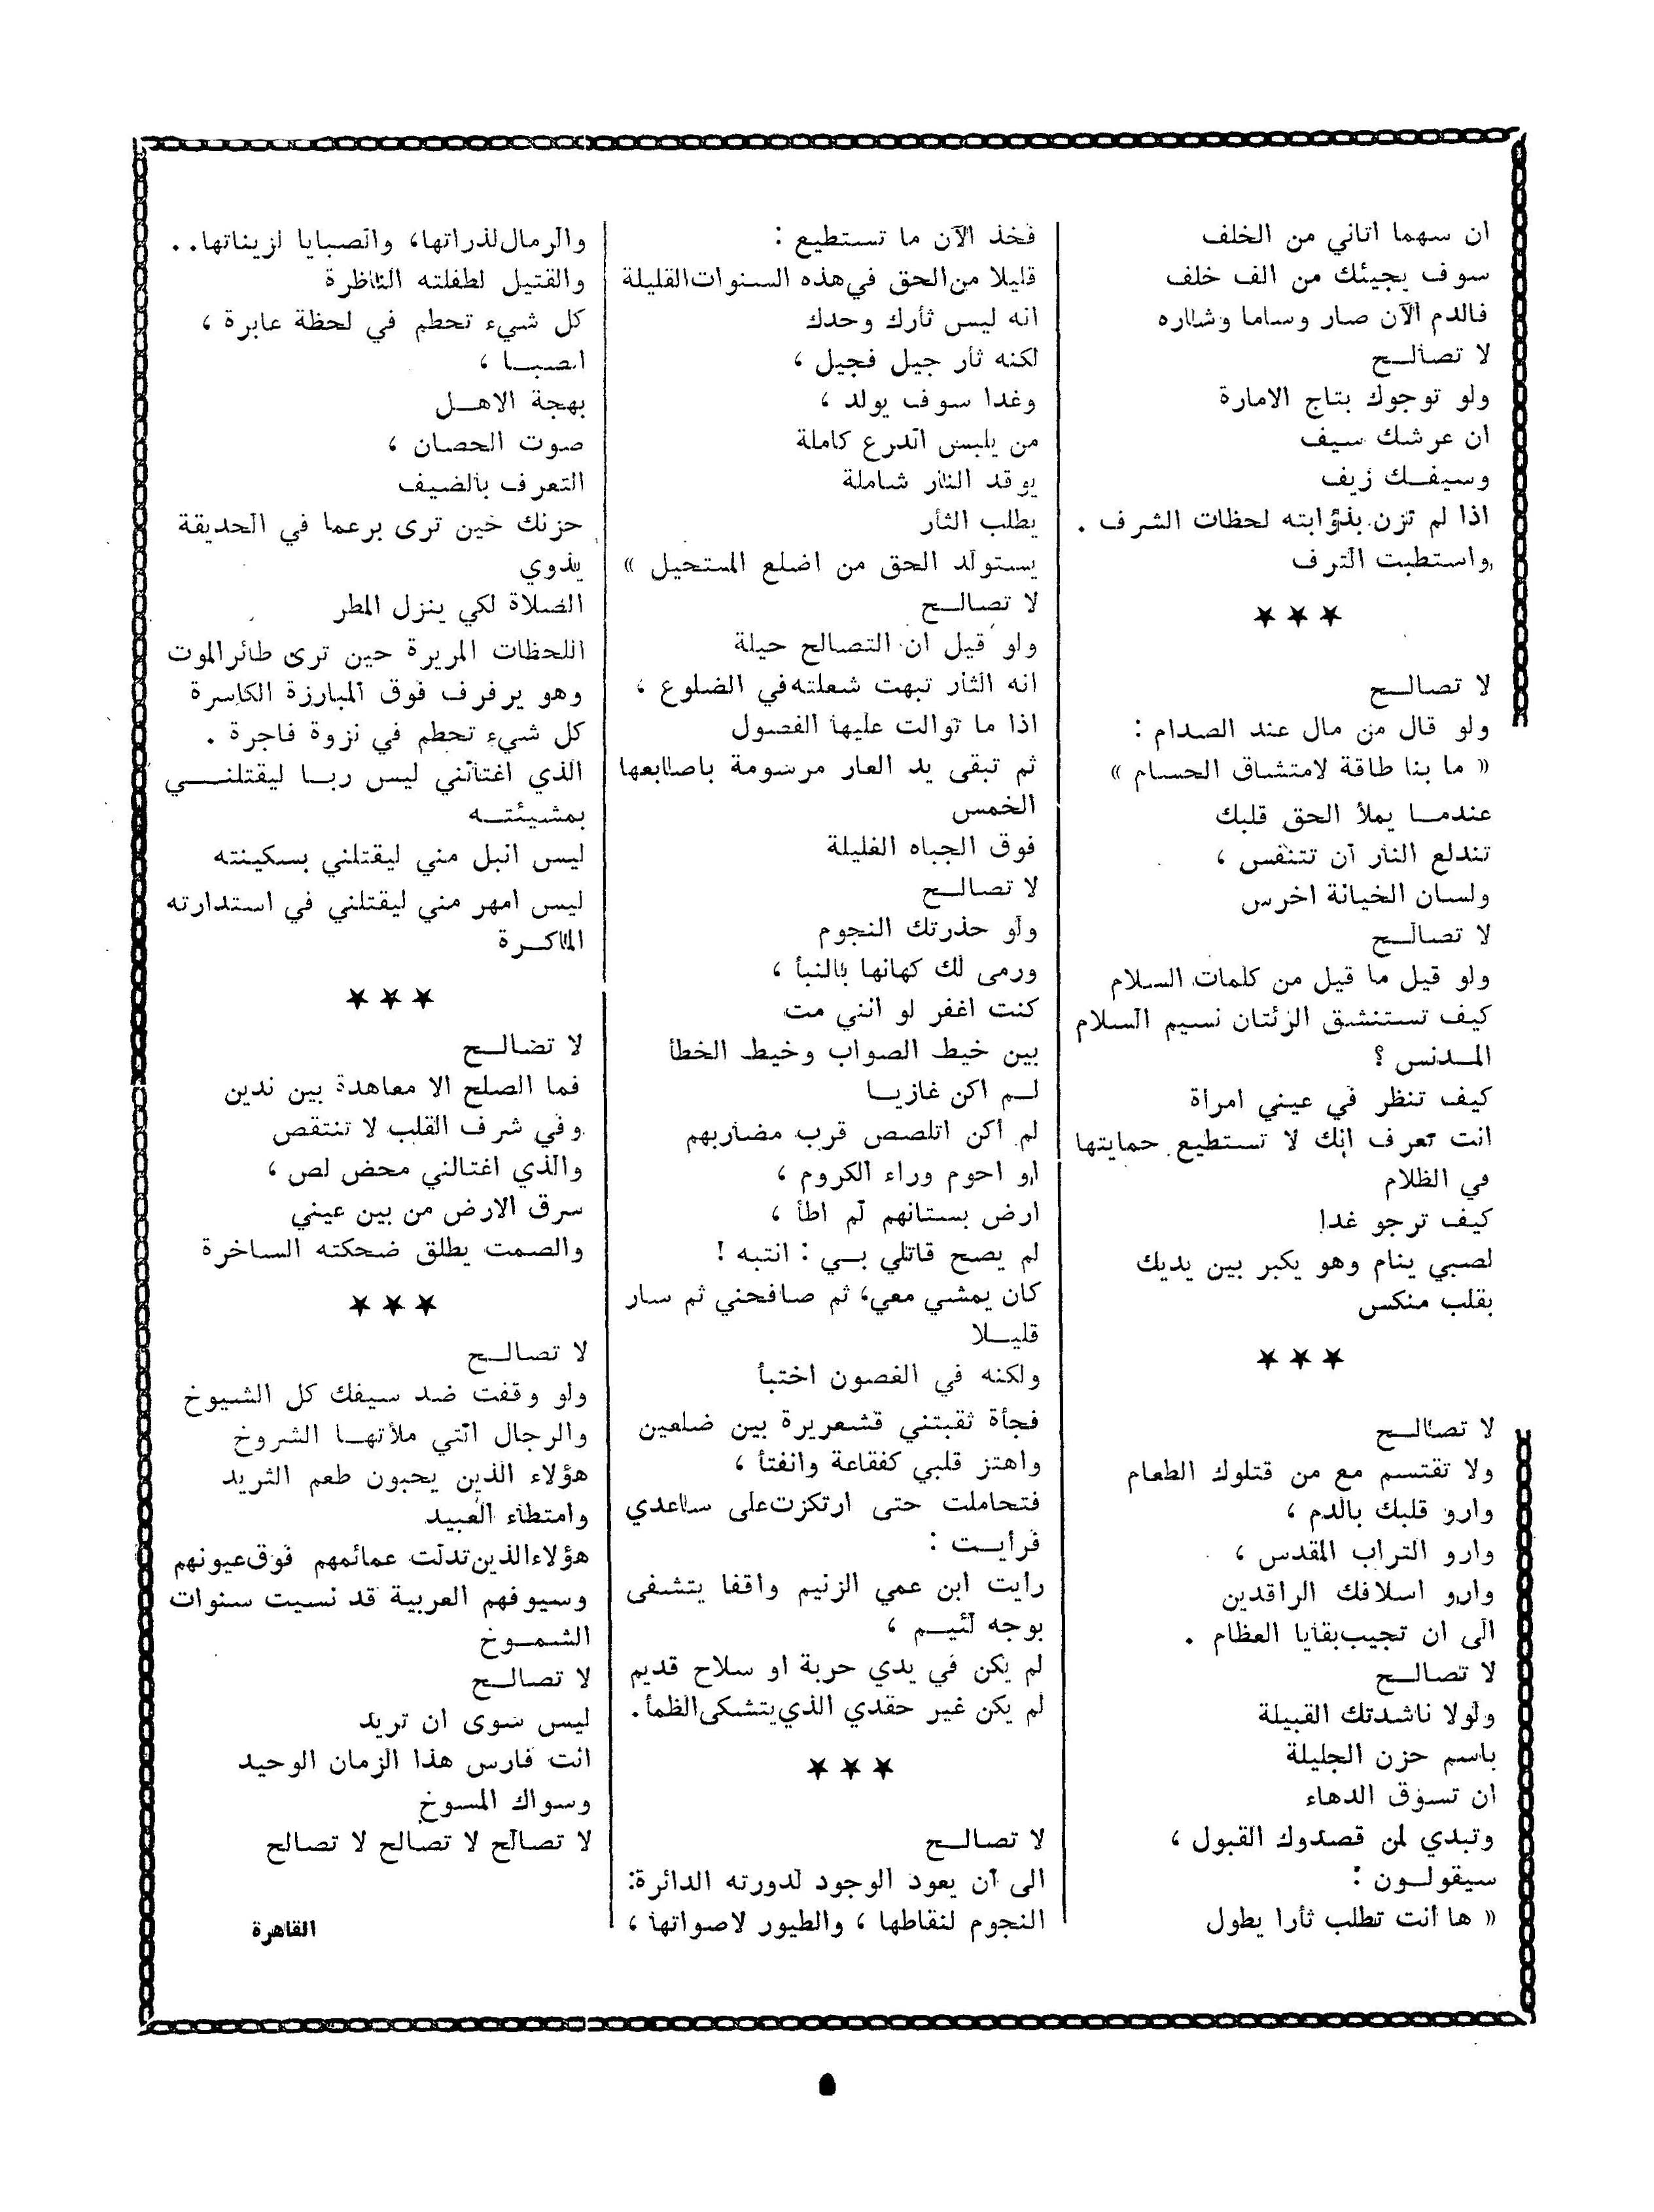 ان سهما اتاني من الخلف
سوف يجيئك من الف خلف
فالدم الآن صار وساما وشاره
لا تصالح
ولو توجوك بتاج الامارة
ان عرشك سيف
وسيفك زيف
اذا لم تزن بذؤابته لحظات الشرف .
واستطبت الترف
★ ★ ★
لا تصالح
ولو قال من مال عند الصدام :
« ما بنا طاقة لامتشاق الحسام »
عندما يملأ الحق قلبك
تندلع النار ان تتنفس ،
ولسان الخيانة اخرس
لا تصالح
ولو قيل ما قيل من كلمات السلام
كيف تستنشق الرئتان نسيم السلام
المدنس ؟
كيف تنظر في عيني امرأة
انت تعرف انك لا تستطيع حمايتها
في الظلام
كيف ترجو غدا
لصبي ينام وهو يكبر بين يديك
بقلب منكس
★ ★ ★
لا تصالح
ولا تقتسم مع من قتلوك الطعام
وارو قلبك بالدم ،
وارو التراب المقدس ،
وارو اسلافك الراقدين
الى ان تجيب بقايا العظام .
لا تصالح
ولولا ناشدتك القبيلة
باسم حزن الجليلة
ان تسوق الدهاء
وتبدي لمن قصدوك القبول ،
سيقولون :
« ها أنت تطلب ثأرا يطول
فخذ الآن ما تستطيع :
قليلا من الحق في هذه السنوات القليلة
انه ليس ثأرك وحدك
لكنه ثأر جيل فجيل ،
وغدا سوف يولد ،
من يلبس الدرع كاملة
يوقد النار شاملة
يطلب الثأر
يستولد الحق من اضلع المستحيل »
لا تصالح
ولو قيل ان التصالح حيلة
انه الثأر تبهت شعلته في الضلوع ،
اذا ما توالت عليها الفصول
ثم تبقى يد العار مرسومة باصابعها
الخمس
فوق الجباه الغليلة
لا تصالح
ولو حذرتك النجوم
ورمى لك كهانها بالنبأ ،
كنت اغفر لو انني مت
بين خيط الصواب وخيط الخطأ
لم اكن غازيا
لم أكن اتلصص قرب مضاربهم
او احوم وراء الكروم ،
ارض بستانهم لم اطأ ،
لم يصح قاتلي بي : انتبه !
كان يمشي معي، ثم صافحني ثم سار
قليلا
ولكنه في الغصون اختبأ
فجأة ثقبتني قشعريرة بين ضلعين
واهتز قلبي كفقاعة وانفتأ ،
فتحاملت حتى ارتكزت على ساعدي
فرأيت :
رأيت ابن عمي الزنيم واقفا يتشفى
بوجه لئيم ،
لم يكن في يدي حربة او سلاح قديم
لم يكن غير حقدي الذي يتشكى الظمأ.
★ ★ ★
لا تصالح
الى أن يعود الوجود لدورته الدائرة:
النجوم لنقاطها ، والطيور لاصواتها ،
والرمال لذراتها، والصبايا لزيناتها..
والقتيل لطفلته الناظرة
كل شيء تحطم في لحظة عابرة ،
الصبا ،
بهجة الاهل
صوت الحصان ،
التعرف بالضيف
حزنك حين ترى برعما في الحديقة
يذوي
الصلاة لكي ينزل المطر
اللحظات المريرة حين ترى طائر الموت
وهو يرفرف فوق المبارزة الكاسرة
كل شيء تحطم في نزوة فاجرة .
الذي اغتالني ليس ربا ليقتلني
بمشيئته
ليس انبل مني ليقتلني بسكينته
ليس امهر مني ليقتلني في استدارته
الماكرة
★ ★ ★
لا تصالح
فما الصلح الا معاهدة بين ندين
وفي شرف القلب لا تنتقص
والذي اغتالني محض لص ،
سرق الارض من بين عيني
والصمت يطلق ضحكته الساخرة
★ ★ ★
لا تصالح
ولو وقفت ضد سيفك كل الشيوخ
والرجال التي ملأتها الشروخ
هؤلاء الذين يحبون طعم الثريد
وامتطاء العبيد
هؤلاء الذين تدلت عمائمهم فوق عيونهم
وسيوفهم العربية قد نسيت سنوات
الشموخ
لا تصالح
ليس سوى ان تريد
انت فارس هذا الزمان الوحيد
وسواك المسوخ
لا تصالح لا تصالح لا تصالح
القاهرة
٥